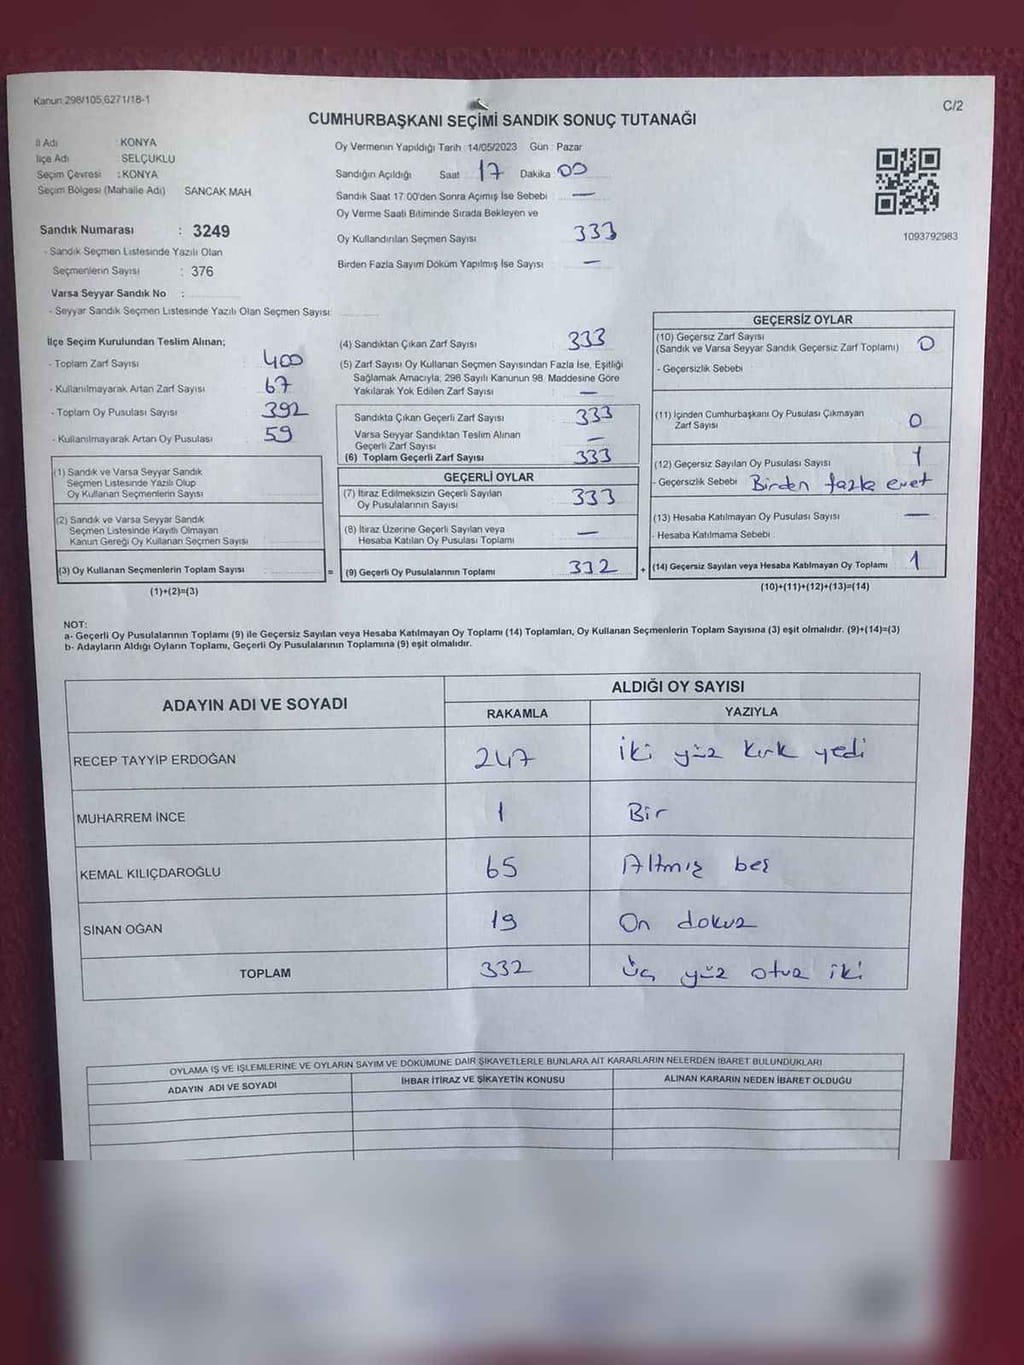 Kanun 298/105,6271/18-1
C/2
CUMHURBAŞKANI SEÇİMİ SANDIK SONUÇ TUTANAĞI
İl Adı : KONYA
İlçe Adı : SELÇUKLU
Seçim Çevresi : KONYA
Seçim Bölgesi (Mahalle Adı) SANCAK MAH
Sandık Numarası : 3249
- Sandık Seçmen Listesinde Yazılı Olan
Seçmenlerin Sayısı : 376
Varsa Seyyar Sandık No :
- Seyyar Sandık Seçmen Listesinde Yazılı Olan Seçmen Sayısı:
Oy Vermenin Yapıldığı Tarih : 14/05/2023 Gün : Pazar
Sandığın Açıldığı Saat 17 Dakika 00
Sandık Saat 17.00'den Sonra Açımış İse Sebebi —
Oy Verme Saati Bitiminde Sırada Bekleyen ve
Oy Kullandırılan Seçmen Sayısı 333
Birden Fazla Sayım Döküm Yapılmış İse Sayısı —
1093792983
İlçe Seçim Kurulundan Teslim Alınan;
- Toplam Zarf Sayısı 400
- Kullanılmayarak Artan Zarf Sayısı 67
- Toplam Oy Pusulası Sayısı 392
- Kullanılmayarak Artan Oy Pusulası 59
(1) Sandık ve Varsa Seyyar Sandık
Seçmen Listesinde Yazılı Olup
Oy Kullanan Seçmenlerin Sayısı
(2) Sandık ve Varsa Seyyar Sandık
Seçmen Listesinde Kayıtlı Olmayan
Kanun Gereği Oy Kullanan Seçmen Sayısı
(3) Oy Kullanan Seçmenlerin Toplam Sayısı
=
(1)+(2)=(3)
(4) Sandıktan Çıkan Zarf Sayısı 333
(5) Zarf Sayısı Oy Kullanan Seçmen Sayısından Fazla İse, Eşitliği
Sağlamak Amacıyla, 298 Sayılı Kanunun 98. Maddesine Göre
Yakılarak Yok Edilen Zarf Sayısı —
Sandıkta Çıkan Geçerli Zarf Sayısı 333
Varsa Seyyar Sandıktan Teslim Alınan
Geçerli Zarf Sayısı —
(6) Toplam Geçerli Zarf Sayısı 333
GEÇERLİ OYLAR
(7) İtiraz Edilmeksizin Geçerli Sayılan
Oy Pusulalarının Sayısı 333
(8) İtiraz Üzerine Geçerli Sayılan veya
Hesaba Katılan Oy Pusulası Toplamı —
(9) Geçerli Oy Pusulalarının Toplamı 332
+
GEÇERSİZ OYLAR
(10) Geçersiz Zarf Sayısı
(Sandık ve Varsa Seyyar Sandık Geçersiz Zarf Toplamı) 0
- Geçersizlik Sebebi
(11) İçinden Cumhurbaşkanı Oy Pusulası Çıkmayan
Zarf Sayısı 0
(12) Geçersiz Sayılan Oy Pusulası Sayısı 1
- Geçersizlik Sebebi Birden fazla evet
(13) Hesaba Katılmayan Oy Pusulası Sayısı —
- Hesaba Katılmama Sebebi
(14) Geçersiz Sayılan veya Hesaba Katılmayan Oy Toplamı 1
(10)+(11)+(12)+(13)=(14)
NOT:
a- Geçerli Oy Pusulalarının Toplamı (9) ile Geçersiz Sayılan veya Hesaba Katılmayan Oy Toplamı (14) Toplamları, Oy Kullanan Seçmenlerin Toplam Sayısına (3) eşit olmalıdır. (9)+(14)=(3)
b- Adayların Aldığı Oyların Toplamı, Geçerli Oy Pusulalarının Toplamına (9) eşit olmalıdır.
ADAYIN ADI VE SOYADI
ALDIĞI OY SAYISI
RAKAMLA YAZIYLA
RECEP TAYYİP ERDOĞAN 247 iki yüz kırk yedi
MUHARREM İNCE 1 Bir
KEMAL KILIÇDAROĞLU 65 Altmış beş
SİNAN OĞAN 19 On dokuz
TOPLAM 332 üç yüz otuz iki
OYLAMA İŞ VE İŞLEMLERİNE VE OYLARIN SAYIM VE DÖKÜMÜNE DAİR ŞİKAYETLERLE BUNLARA AİT KARARLARIN NELERDEN İBARET BULUNDUKLARI
ADAYIN ADI VE SOYADI İHBAR İTİRAZ VE ŞİKAYETİN KONUSU ALINAN KARARIN NEDEN İBARET OLDUĞU